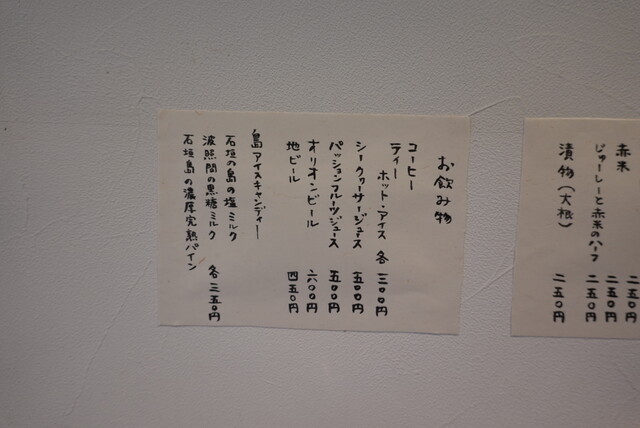 赤米 二五〇円
じゅーしーと赤米のハーフ 二五〇円
漬物（大根） 二五〇円
お飲み物
コーヒー
ティー
ホット・アイス 各 三〇〇円
シークヮーサージュース 五〇〇円
パッションフルーツジュース 五〇〇円
オリオンビール 六〇〇円
地ビール 四五〇円
島アイスキャンディー
石垣の島の塩ミルク
波照間の黒糖ミルク 各 三五〇円
石垣島の濃厚完熟パイン